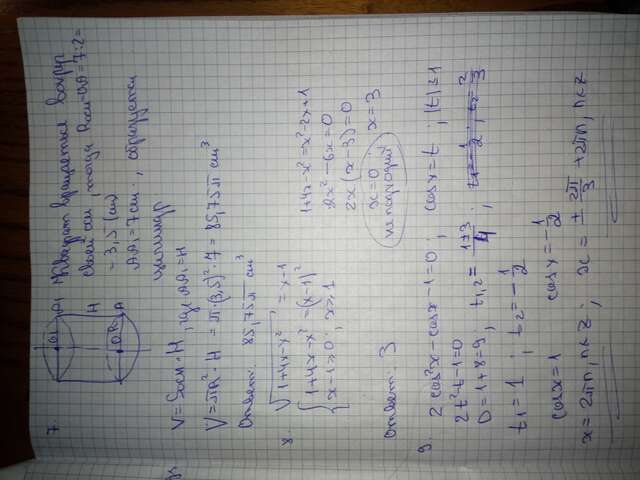 7
O₁ D₁
H
O R A
Квадрат вращается вокруг
своей оси, тогда Rосн=OA=7:2=
= 3,5 (см)
AA₁=7см, образуется
цилиндр
V=Sосн·H, где AA₁=H
V=πR²·H = π·(3,5)²·7 = 85,75π см³
Ответ: 85,75π см³
8. √1+4x-x² = x-1
{ 1+4x-x² = (x-1)²
x-1≥0; x≥1
1+4x-x²=x²-2x+1
2x²-6x=0
2x(x-3)=0
x=0 x=3
не подходит
Ответ: 3
9 2cos²x-cosx-1=0; cosx=t; |t|≤1
2t²-t-1=0
D=1+8=9; t₁,₂= 1±3/4; t₁=-1/2; t₂=2/3
t₁=1; t₂=-1/2
cosx=1 cosx=1/2
x=2πn, n∈Z; x=± 2π/3 +2πn, n∈Z